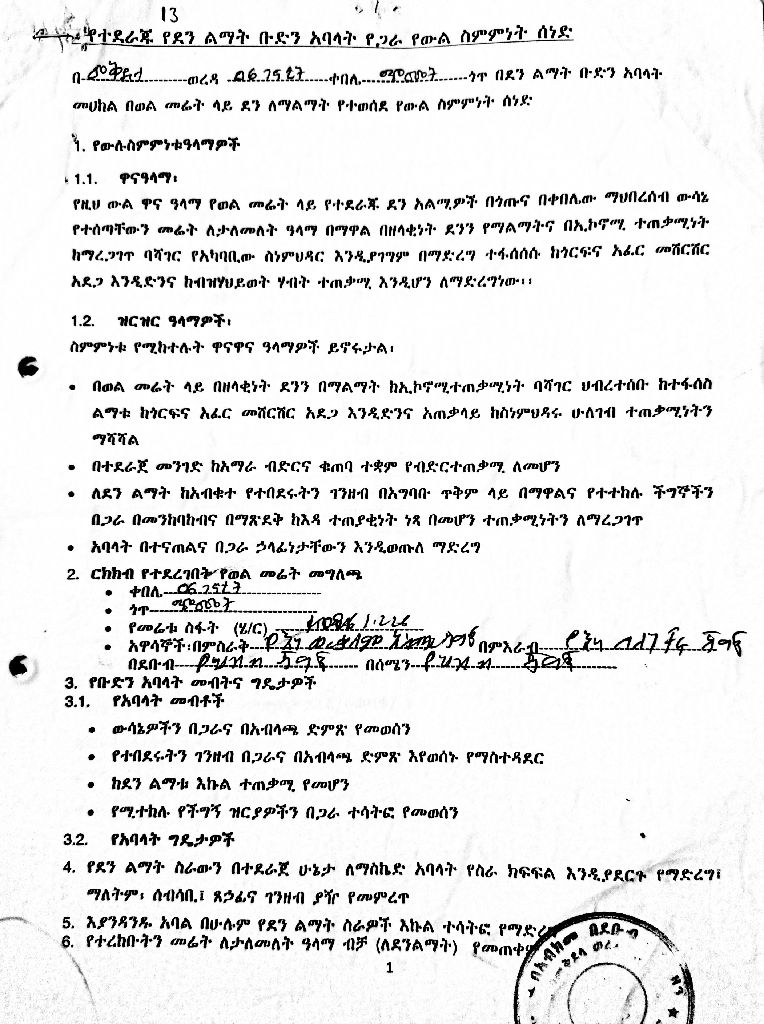 13
የተደራጁ የደን ልማት ቡድን አባላት የጋራ የውል ስምምነት ሰነድ
በ መቅደላ ወረዳ 06 ቀበሌ ጎጥ በደን ልማት ቡድን አባላት
መሀከል በወል መሬት ላይ ደን ለማልማት የተወሰደ የውል ስምምነት ሰነድ
1. የውሉስምምነቱዓላማዎች
1.1. ዋናዓላማ፡
የዚህ ውል ዋና ዓላማ የወል መሬት ላይ የተደራጁ ደን አልሚዎች በጎጡና በቀበሌው ማህበረሰብ ውሳኔ
የተሰጣቸውን መሬት ለታለመለት ዓላማ በማዋል በዘላቂነት ደንን የማልማትና በኢኮኖሚ ተጠቃሚነት
ከማረጋገጥ ባሻገር የአካባቢው ስነምህዳር እንዲያገግም በማድረግ ተፋሰሰሱ ከጎርፍና አፈር መሸርሸር
አደጋ እንዲድንና ከብዝሃህይወት ሃብት ተጠቃሚ እንዲሆን ለማድረግነው፡፡
1.2. ዝርዝር ዓላማዎች፡
ስምምነቱ የሚከተሉት ዋናዋና ዓላማዎች ይኖሩታል፡
• በወል መሬት ላይ በዘላቂነት ደንን በማልማት ከኢኮኖሚተጠቃሚነት ባሻገር ህብረተሰቡ ከተፋሰስ
ልማቱ ከጎርፍና አፈር መሸርሸር አደጋ እንዲድንና አጠቃላይ ከስነምህዳሩ ሁለገብ ተጠቃሚነትን
ማሻሻል
• በተደራጀ መንገድ ከአማራ ብድርና ቁጠባ ተቋም የብድርተጠቃሚ ለመሆን
• ለደን ልማት ከአብቁተ የተበደሩትን ገንዘብ በአግባቡ ጥቅም ላይ በማዋልና የተተከሉ ችግኞችን
በጋራ በመንከባከብና በማጽደቅ ከእዳ ተጠያቂነት ነጻ በመሆን ተጠቃሚነትን ለማረጋገጥ
• አባላት በተናጠልና በጋራ ኃላፊነታቸውን እንዲወጡለ ማድረግ
2. ርክክብ የተደረገበት የወል መሬት መግለጫ
• ቀበሌ 06
• ጎጥ
• የመሬቱ ስፋት (ሄ/ር)
• አዋሳኞች፡በምስራቅ በምእራብ
በደቡብ በሰሜን
3. የቡድን አባላት መብትና ግዴታዎች
3.1. የአባላት መብቶች
• ውሳኔዎችን በጋራና በአብላጫ ድምጽ የመወሰን
• የተበደሩትን ገንዘብ በጋራና በአብላጫ ድምጽ እየወሰኑ የማስተዳደር
• ከደን ልማቱ እኩል ተጠቃሚ የመሆን
• የሚተከሉ የችግኝ ዝርያዎችን በጋራ ተሳትፎ የመወሰን
3.2. የአባላት ግዴታዎች
4. የደን ልማት ስራውን በተደራጀ ሁኔታ ለማስኬድ አባላት የስራ ክፍፍል እንዲያደርጉ የማድረግ፤
ማለትም፡ ሰብሳቢ፤ ጸኃፊና ገንዘብ ያዥ የመምረጥ
5. እያንዳንዱ አባል በሁሉም የደን ልማት ስራዎች እኩል ተሳትፎ የማድረ
6. የተረከቡትን መሬት ለታለመለት ዓላማ ብቻ (ለደንልማት) የመጠቀም
1
በአብክመ በደቡብ